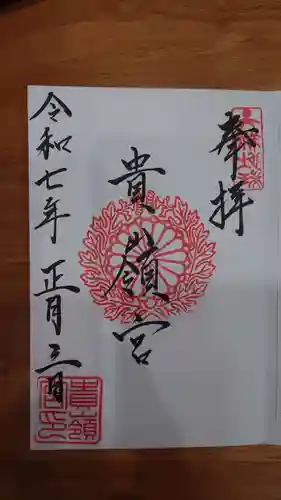 奉拝
貴嶺宮
令和七年 正月三日